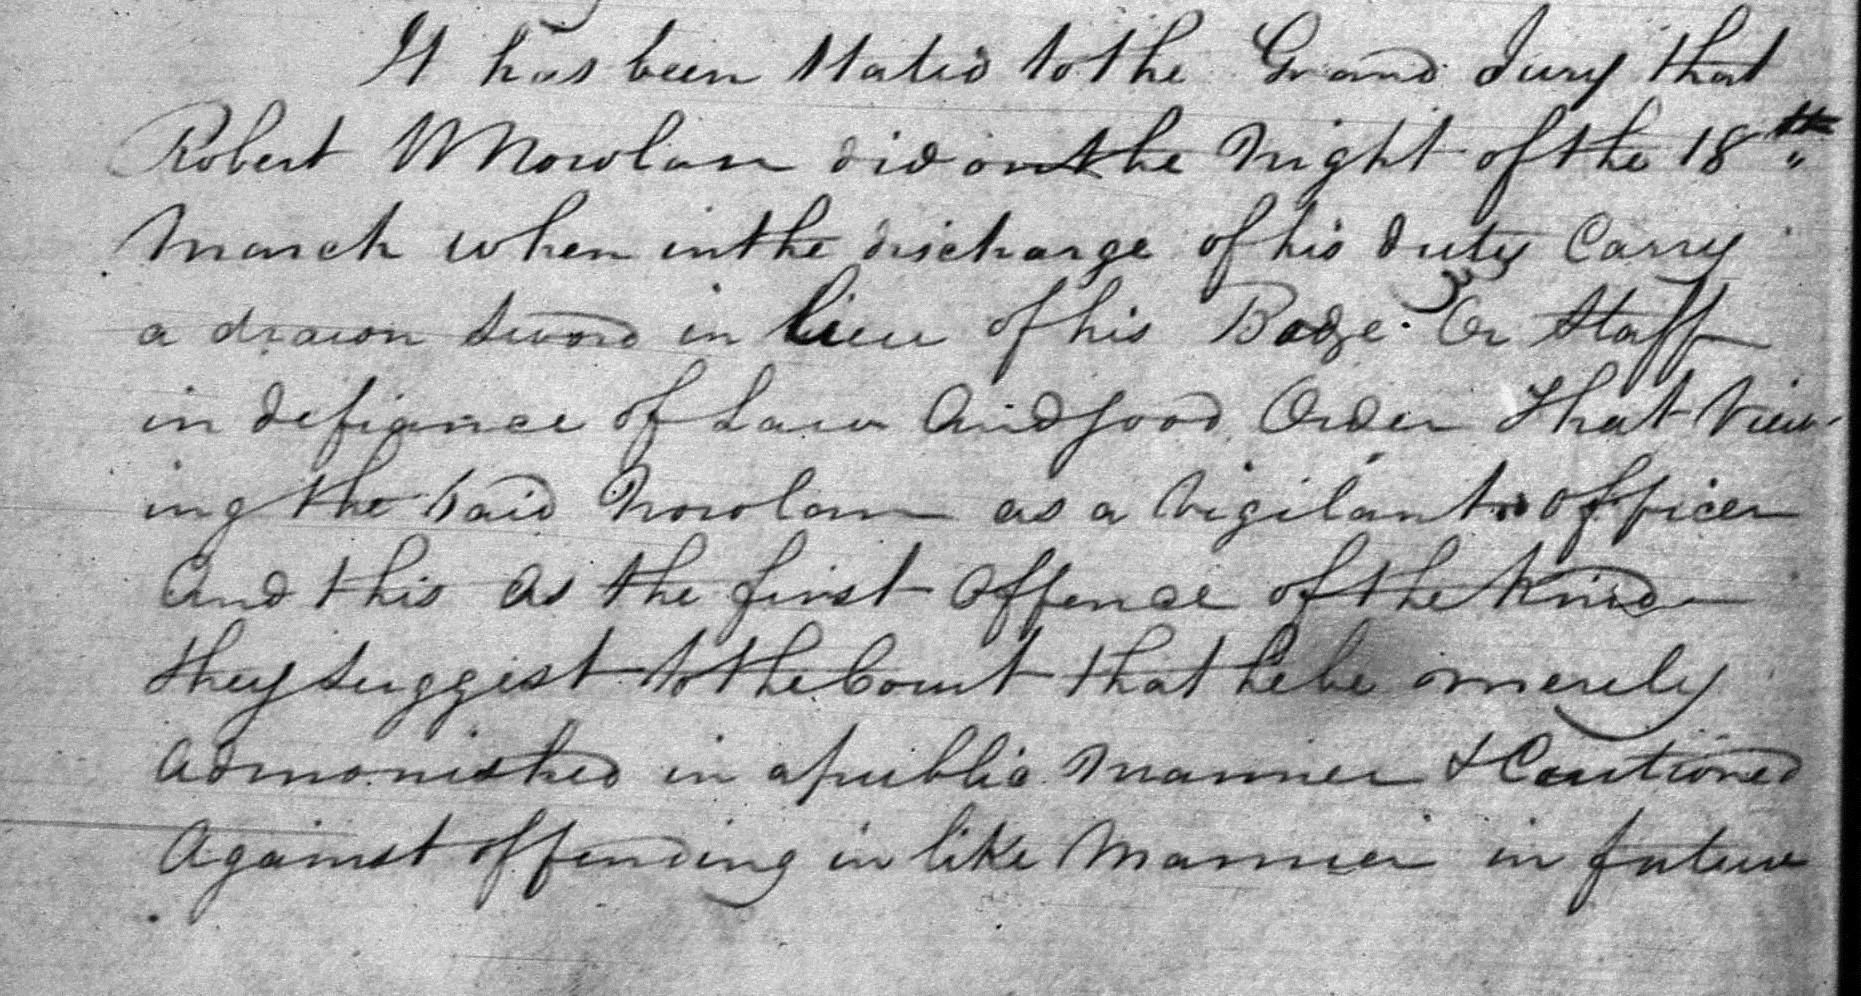 It has been stated to the Grand Jury that
Robert W Nowlan did on the Night of the 18th
March when in the discharge of his duty Carry
a drawn sword in lieu of his Badge Or Staff
in defiance of Law And good Order That view-
ing the Said Nowlan as a Vigilant officer
And this as the first offence of the Kind
they suggest to the Court that he be merely
Admonished in a public Manner & Cautioned
Against offending in like Manner in future